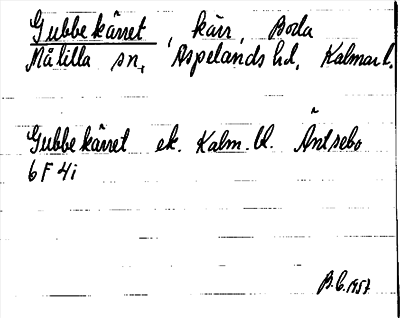 Gubbekärret, kärr, Boda
Målilla sn, Aspelands hd, Kalmar l.
Gubbekärret ek. Kalm. bl. Äntsebo
6 F 4i